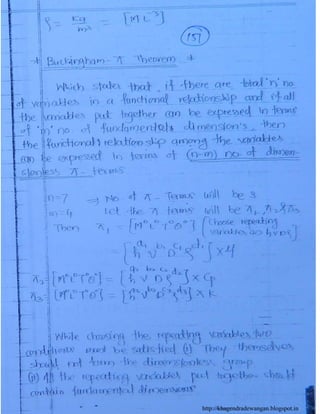 ρ = Kg/m³ = [M L⁻³]
157
* Buckingham - π Theorem *
Which states that, if there are total 'n' no.
of variables in a functional relationship and if all
the variables put together can be expressed in terms
of 'm' no. of fundamental dimensions, then
the functional relationship among the variables
can be expressed in terms of (n-m) no. of dimen-
sionless π - terms
n=7 ⇒ No of π - Terms will be 3
m=4 Let the π terms will be π₁, π₂ & π₃
Then π₁ = [M⁰L⁰T⁰θ⁰] [Choose repeating
variables as h V D ρ]
[h^a₁ V^b₁ D^c₁ ρ^d₁] × μ
π₂ = [M⁰L⁰T⁰θ⁰] = [h^a₂ V^b₂ D^c₂ ρ^d₂] × Cp
π₃ = [M⁰L⁰T⁰θ⁰] = [h^a₃ V^b₃ D^c₃ ρ^d₃] × K
While choosing the repeating variables two
conditions must be satisfied (i) They themselves
should not form the dimensionless group
(ii) All the repeating variables put together should
contain fundamental dimensions
http://khagendradewangan.blogspot.in